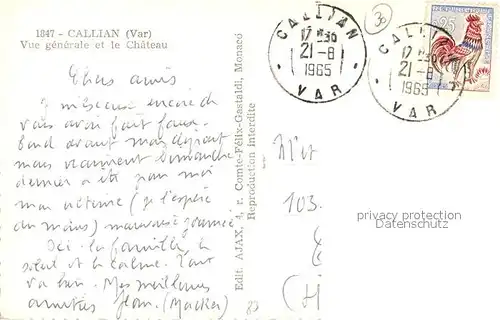 1847 - CALLIAN (Var)
Vue générale et le Château
Chers amis
vous avoir fait faux-
bond avant mon départ
mais vraiment Dimanche
dernier a été pour moi
mon (j'espère
du moins) mauvaise journée
Ici la famille, le
soleil et le calme. Tout
va bien. Mes meilleures
amitiés
Edit. AJAX, 4, r. Comte-Félix-Gastaldi, Monaco
Reproduction interdite
CALLIAN
17 H 30
21-8
1965
VAR
CALLIAN
17 H 30
21-8
1965
VAR
0,25
30
103.
83
privacy protection
Datenschutz